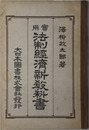 澤柳政太郎著
實用
法制經濟新教科書
大日本圖書株式會社發行